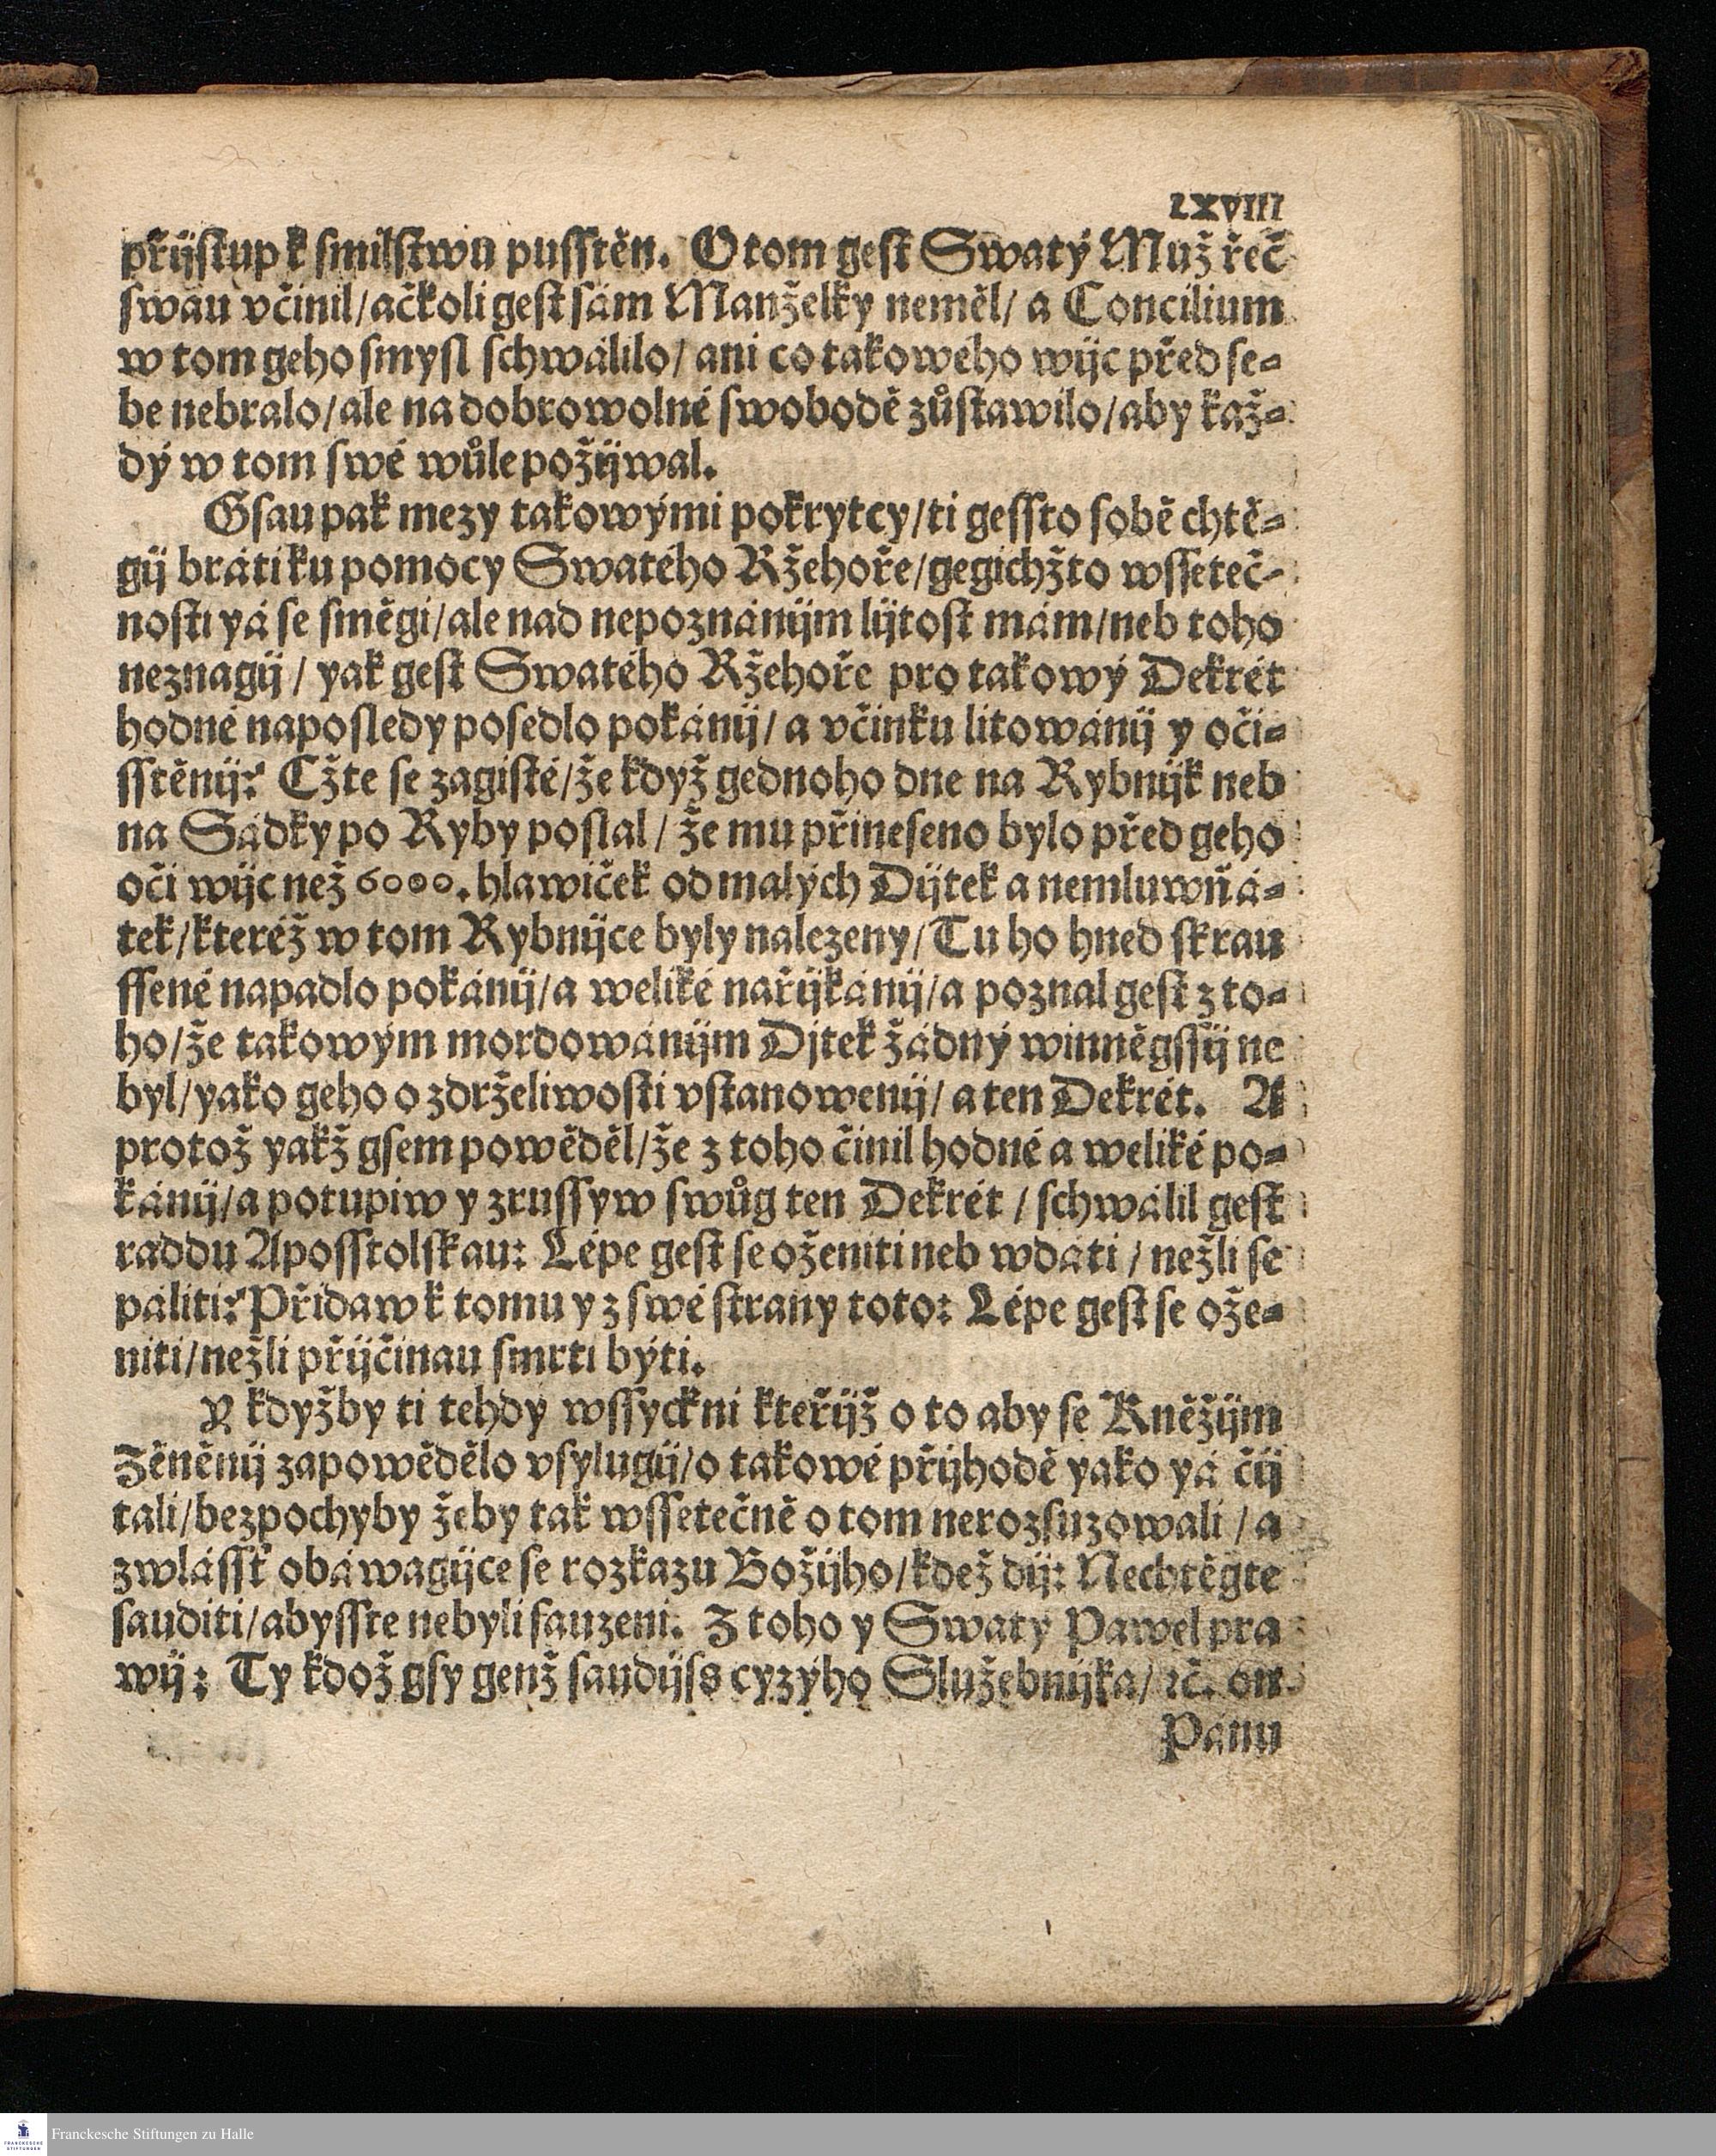 LXVIII
přijstup k smilstwu pusstěn. O tom gest Swatý Muž řeč
swau včinil/ ačkoli gest sám Manželky neměl/ a Concilium
w tom geho smysl schwálilo/ ani co takowého wijc před se-
be nebralo/ ale na dobrowolné swobodě zůstawilo/ aby kaž-
dý w tom swé wůle požijwal.
Gsau pak mezy takowými pokrytcy/ ti gessto sobě chtě-
gij bráti ku pomocy Swatého Ržehoře/ gegichžto wsseteč-
nosti yá se směgi/ ale nad nepoznánijm lijtost mám/ neb toho
neznagij/ yak gest Swatého Ržehoře pro takowý Dekrét
hodné naposledy posedlo pokánij/ a včinku litowánij y oči-
sstěnij: Cžte se zagisté/ že když gednoho dne na Rybnijk neb
na Sádky po Ryby poslal/ že mu přineseno bylo před geho
oči wijc než 6000. hlawiček od malých Dijtek a nemluwňá-
tek/ kteréž w tom Rybnijce byly nalezeny/ Tu ho hned skrau
ssené napadlo pokánij/ a weliké nařijkánij/ a poznal gest z to-
ho/ že takowým mordowánijm Djtek žádný winněgssij ne
byl/ yako geho o zdrželiwosti vstanowenij/ a ten Dekrét. A
protož yakž gsem powěděl/ že z toho činil hodné a weliké po-
kánij/ a potupiw y zrussyw swůg ten Dekrét/ schwálil gest
raddu Aposstolskau: Lépe gest se oženiti neb wdáti/ nežli se
páliti: Přidaw k tomu y z swé strany toto: Lépe gest se ože-
niti/ nežli přijčinau smrti býti.
Y kdyžby ti tehdy wssyckni kteřijž o to aby se Kněžijm
Zěněnij zapowědělo vsylugij/ o takowé přijhodě yako yá čij
tali/ bezpochyby žeby tak wssetečně o tom nerozsuzowali/ a
zwlásst obáwagijce se rozkazu Božijho/ kdež dij: Nechtěgte
sauditi/ abysste nebyli sauzeni. Z toho y Swatý Pawel pra
wij: Ty kdož gsy genž saudijss cyzýho Služebnijka/ ꝛč. on
Pánu
Franckesche Stiftungen zu Halle
FRANCKESCHE
STIFTUNGEN